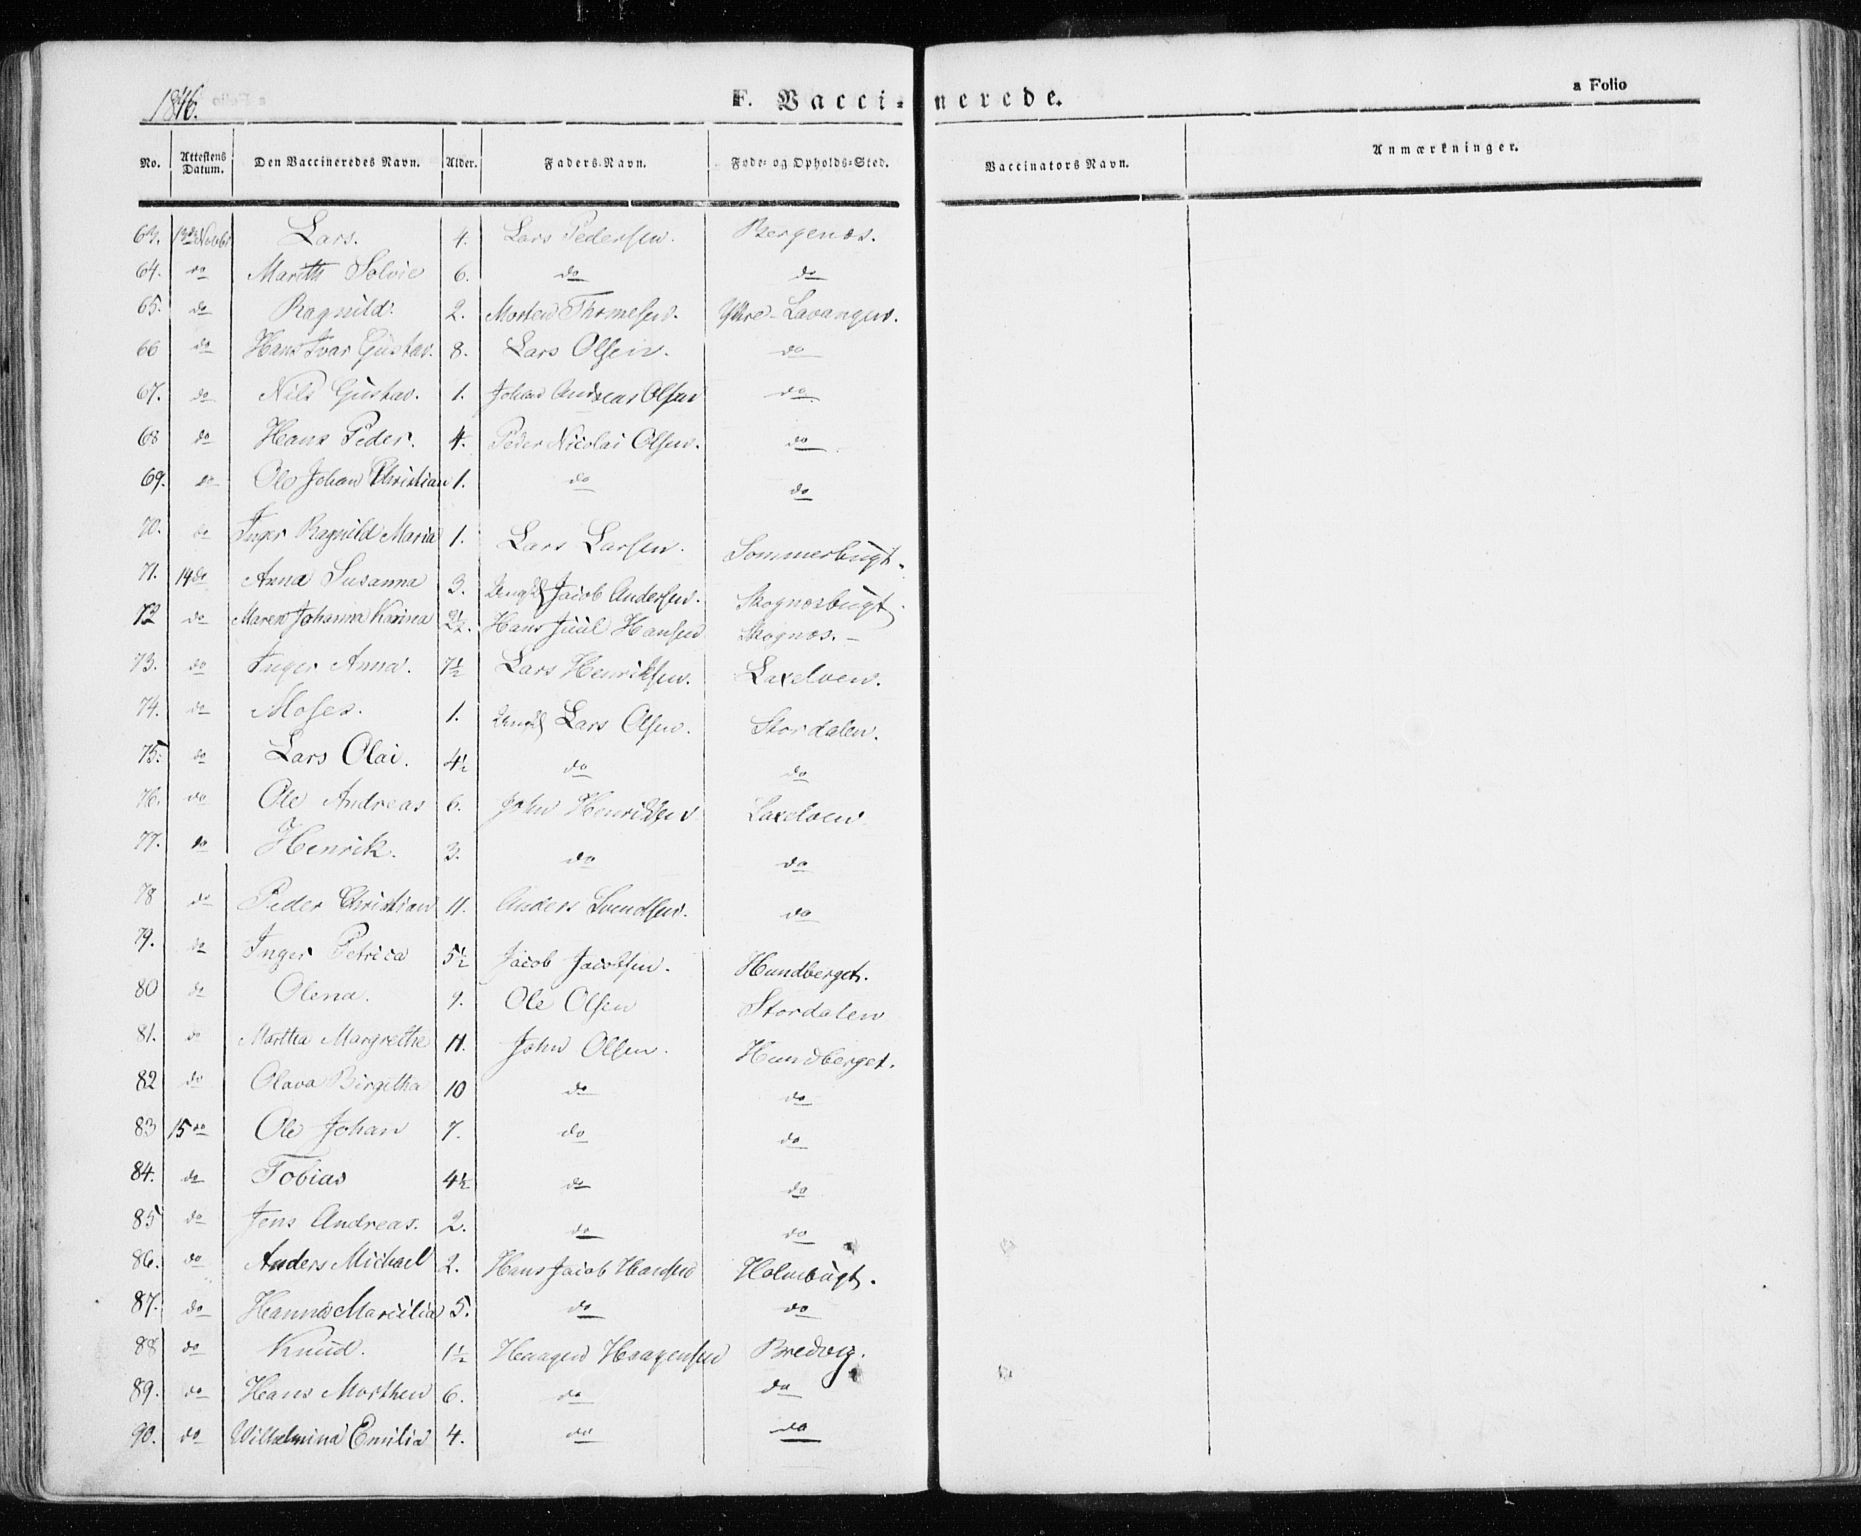 1846.
F. Vaccinerede.
a Folio
No. Attestens Datum. Den Vaccineredes Navn. Alder. Faders-Navn. Føde- og Opholds-Sted. Vaccinators Navn. Anmærkninger.
63. 13de Novbr Lars. 4. Lars Pedersen. Bergenæs.
64. do Mareth Solvie 6. do do
65. do Ragnild. 2. Morten Thomesen. Yttre-Lavangen.
66 do Hans Ivar Gustav. 8. Lars Olsen. do
67. do Nils Gustav. 1. Johan Andreas Olsen do
68 do Hans Peder. 4. Peder Nicolai Olsen. do
69. do Ole Johan Christian 1. do do
70. do Inger Ragnild Maria 1. Lars Larsen. Sommerbugt.
71. 14 do Anna Susanna 3. Jacob Andersen. Skognæsbugt.
72 do Maren Johanna Karina 2½. Hans Juul Hansen Skognæs.
73. do Inger Anna. 7½ Lars Henriksen. Laxelven.
74. do Moses. 1. Lars Olsen. Stordalen.
75. do Lars Olai. 4½ do do
76. do Ole Andreas 6. John Henriksen Laxelven
77. do Henrik. 3. do do
78 do Peder Christian 11. Anders Svendsen. do
79. do Inger Petrica 5½ Jacob Jacobsen. Hundberget.
80 do Olena. 9. Ole Olsen Stordalen
81. do Martha Margrethe 11. John Olsen. Hundberget.
82 do Olava Birgitha 10 do do
83 15 do Ole Johan 7. do do
84. do Tobias 4½ do do
85 do Jens Andreas. 2. do do
86. do Anders Michael 2. Hans Jacob Hansen Holmbugt.
87. do Hanna Marcilia 5. do do
88 do Knud. 1½ Haagen Haagensen Bredvig.
89. do Hans Morthen 6. do do
90. do Wilhelmina Emilia 4. do do